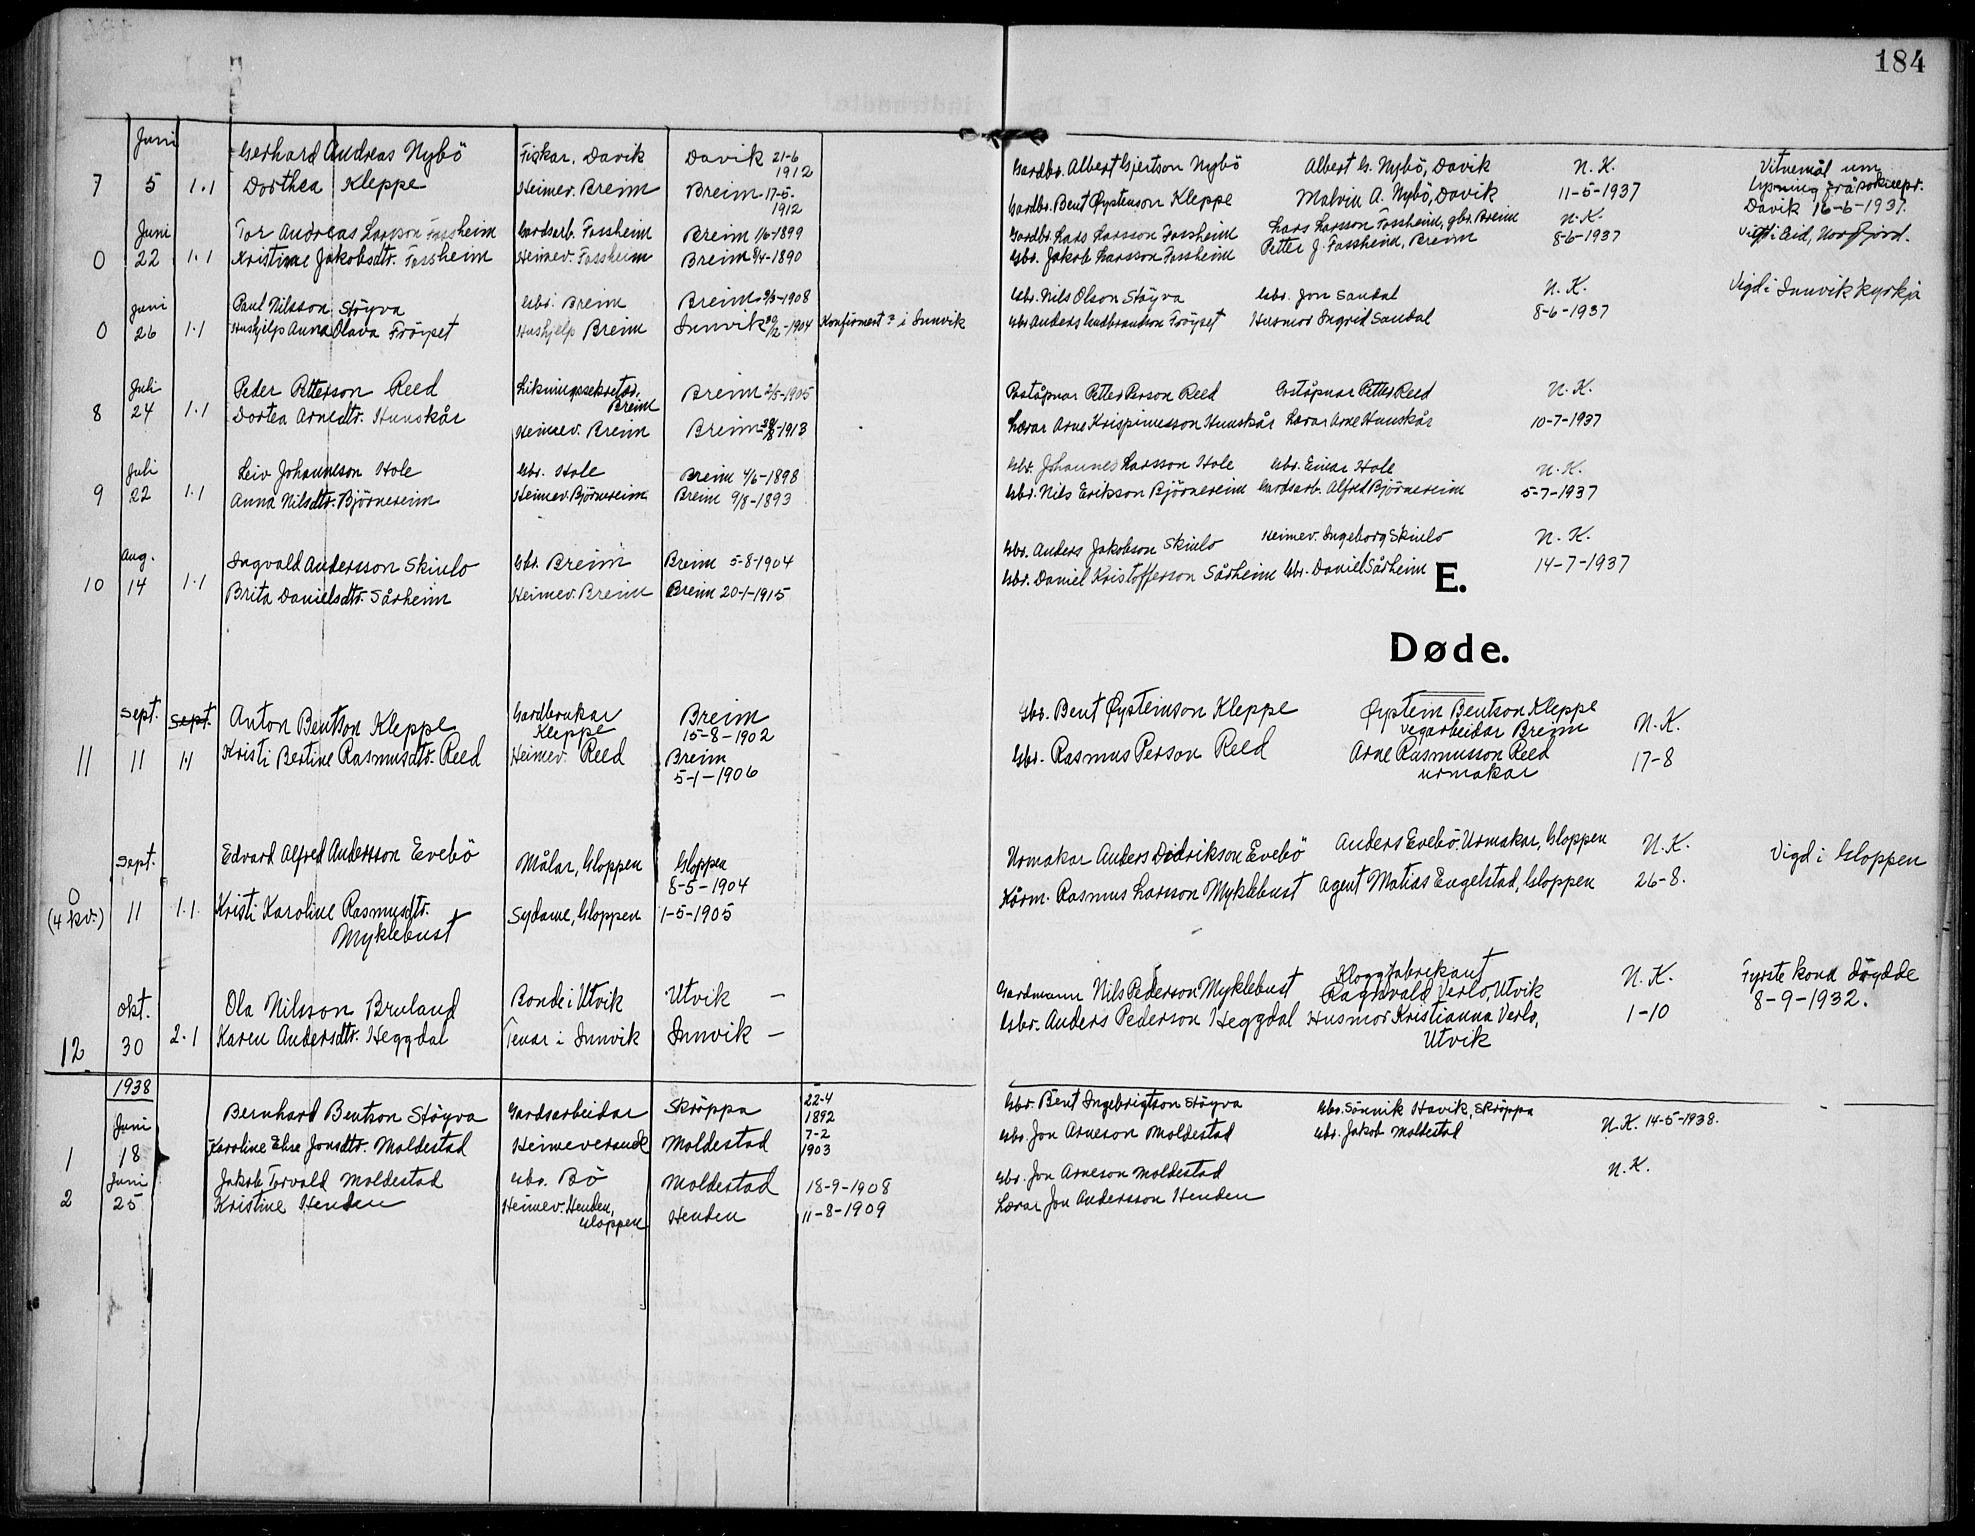 184
Juni Gerhard Andreas Nybö Fiskar, Davik Davik 21-6 1912 Gardbr. Albert Gjertson Nybö Albert G. Nybö, Davik N. K. Vitnemål um
7 5 1.1 Dorthea Kleppe Heimev. Breim Breim 17-5-1912 Gardbr. Bent Öystenson Kleppe Malvin A. Nybö, Davik 11-5-1937 lysning frå soknepr.
Davik 16-6-1937.
Juni Tor Andreas Larsson Fossheim Gardsarb. Fossheim Breim 1/6-1899 Gardbr. Lars Larsson Fossheim Lars Larsson Fossheim, gbr. Breim N. K. Vigd i Eid, Nordfjord.
0 22 1.1 Kristine Jakobsdtr. Fossheim Heimev. Fossheim Breim 8/4-1890 Gbr. Jakob Larsson Fossheim Petter J. Fossheim, Breim 8-6-1937
Juni Paul Nilsson Stöyva Gbr. Breim Breim 9/3-1908 Gbr. Nils Olson Stöyva Gbr. Jon Sandal N. K. Vigd i Innvik kyrkja
0 26 1.1 Hushjelp Anna Olava Fröyset Hushjelp Breim Innvik 30/12-1904 Konfirmert? i Innvik Gbr Anders Gudbrandson Fröyset Husmor Ingrid Sandal 8-6-1937
Juli Peder Petterson Reed Likningssekretær, Breim Breim 2/5-1905 Poståpnar Petter Person Reed Poståpnar Petter Reed N. K.
8 24 1.1 Dortea Arnedtr. Hunskår Heimev. Breim Breim 1913 Lærar Arne Krispinusson Hunskår Lærar Arne Hunskår 10-7-1937
Juli Leiv Johanneson Hole Gbr. Hole Breim 4/6-1898 Gbr. Johannes Larsson Hole Gbr. Einar Hole N. K.
9 22 1.1 Anna Nilsdtr. Björnereim Heimev. Björnereim Breim 9/8-1893 Gbr. Nils Erikson Björnereim Gardsarb. Alfred Björnereim 5-7-1937
Aug. Ingvald Andersson Skinlo Gbr. Breim Breim 5-8-1904 Gbr. Anders Jakobson Skinlo Heimev. Ingeborg Skinlo N. K.
10 14 1.1 Brita Danielsdtr. Sårheim Heimev. Breim Breim 20-1-1915 Gbr. Daniel Kristofferson Sårheim Gbr. Daniel Sårheim 14-7-1937
E.
Døde.
Sept. Sept. Anton Bentson Kleppe Gardbrukar Kleppe Breim 15-8-1902 Gbr. Bent Öysteinson Kleppe Öystein Bentson Kleppe vegarbeidar Breim N. K.
11 11 1.1 Kristi Bertine Rasmusdtr. Reed Heimev. Reed Breim 5-1-1906 Gbr. Rasmus Person Reed Arne Rasmusson Reed urmakar 17-8
Sept. Edvard Alfred Andersson Evebö Målar, Gloppen Gloppen 8-5-1904 Urmakar Anders Didrikson Evebö Anders Evebö. Urmakar, Gloppen N. K. Vigd i Gloppen
0 (4 kv.) 11 1.1. Kristi Karoline Rasmusdtr. Myklebust Sydame, Gloppen 1-5-1905 Kårm. Rasmus Larsson Myklebust Agent Matias Engelstad, Gloppen 26-8.
Okt. Ola Nilsson Bruland Bonde i Utvik Utvik – Gardmann Nils Pederson Myklebust Kloggfabrikant Ragnvald Verlo, Utvik N. K. Fyrste kona döydde
12 30 2.1 Karen Andersdtr. Heggdal Tenar i Innvik Innvik – Gbr. Anders Pederson Heggdal Husmor Kristianna Verlo, Utvik 1-10 8-9-1932.
1938
Juni Bernhard Bentson Stöyva Gardsarbeidar Skröppa 22-4 1892 Gbr. Bent Ingebrigtson Stöyva Gbr. Sönnik Havik, Skröppa
1 18 Karoline Else Jonsdtr. Moldestad Heimeverande Moldestad 7-2 1903 Gbr. Jon Arneson Moldestad Gbr. Jakob Moldestad N. K. 14-5-1938.
Juni Jakob Torvald Moldestad Gbr. Bö Moldestad 18-9-1908 Gbr. Jon Arneson Moldestad N. K.
2 25 Kristine Henden Heimev. Henden, Gloppen Henden 11-8-1909 Lærar Jon Andersson Henden